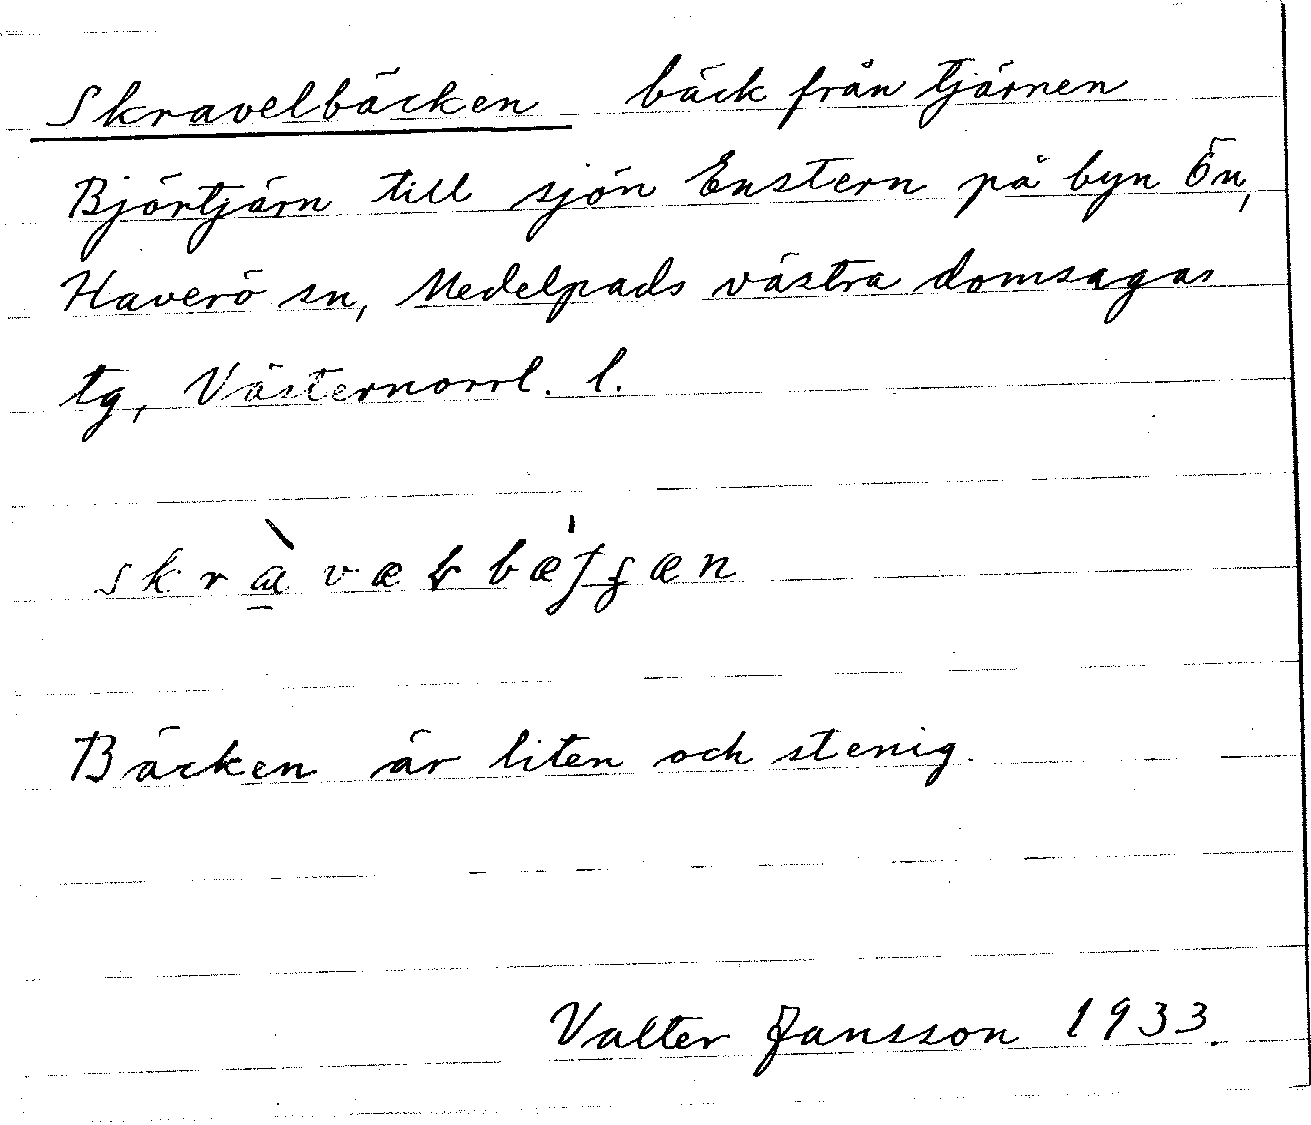 Skravelbäcken bäck från tjärnen
Björtjärn till sjön Enstern på byn Ön,
Haverö sn, Medelpads västra domsagas
tg, Västernorrl. l.
Bäcken är liten och stenig.
Valter Jansson 1933.